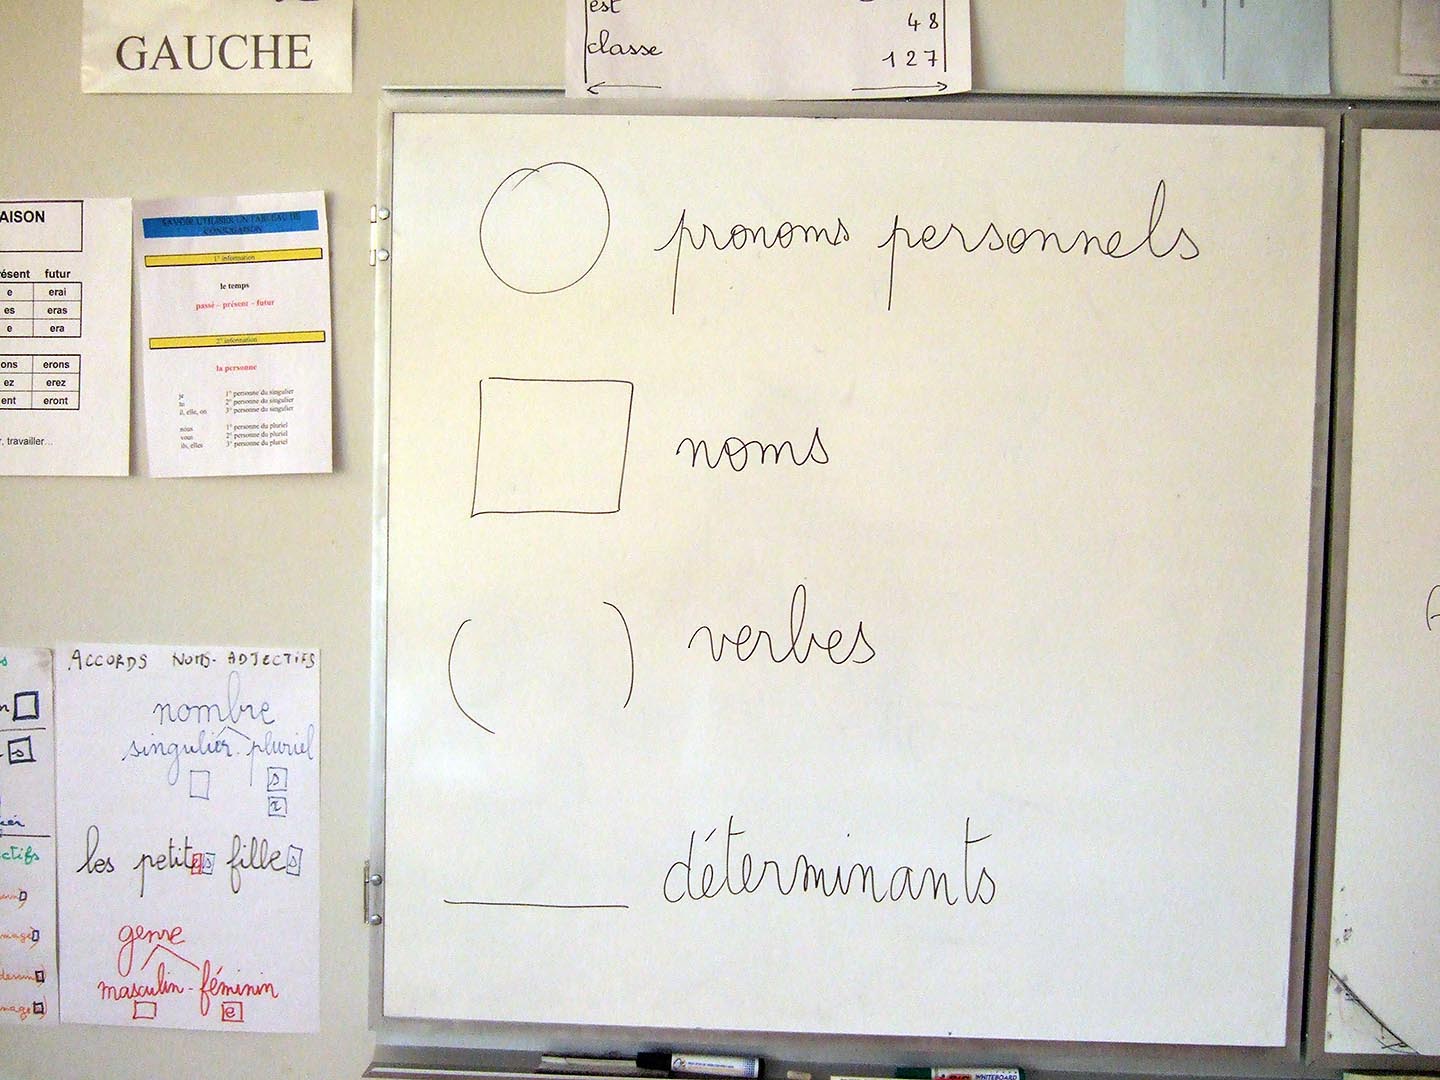 GAUCHE
est
48
classe
127
AISON
résent futur
e erai
es eras
e era
ons erons
ez erez
ent eront
, travailler...
SAVOIR UTILISER UN TABLEAU DE
CONJUGAISON
1° information
le temps
passé – présent – futur
2° information
la personne
je 1° personne du singulier
tu 2° personne du singulier
il, elle, on 3° personne du singulier
nous 1° personne du pluriel
vous 2° personne du pluriel
ils, elles 3° personne du pluriel
pronoms personnels
noms
( ) verbes
déterminants
ACCORDS NOMS-ADJECTIFS
nombre
singulier - pluriel
s
x
les petites filles
genre
masculin - féminin
e
s
ctifs
WHITEBOARD